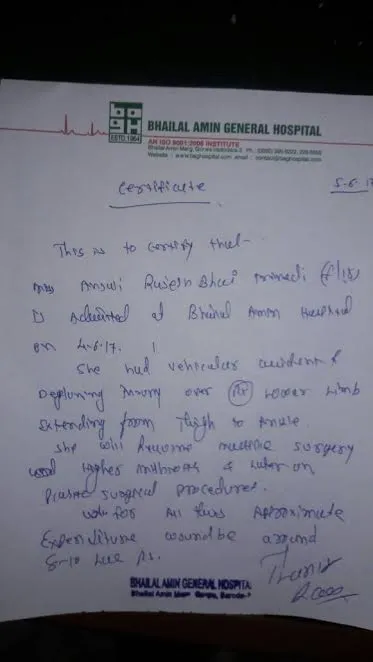 BHAILAL AMIN GENERAL HOSPITAL
ESTD. 1964
AN ISO 9001:2008 INSTITUTE
Bhailal Amin Marg, Gorwa Vadodara-3
Website : www.baghospital.com email : contact@baghospital.com
Certificate
5-6-17
This is to certify that
is Admitted at Bhailal Amin Hospital
on 4-6-17.
She had vehicular accident &
Degluning Injury over Rt Lower Limb
Extending from Thigh to Ankle.
She will Require multiple surgery
Higher & Later on
Plastic surgical procedures.
for All this Approximate
Expenditure would be around
8-10 Rs.
BHAILAL AMIN GENERAL HOSPITAL
Bhailal Amin Marg Gorwa, Baroda-3